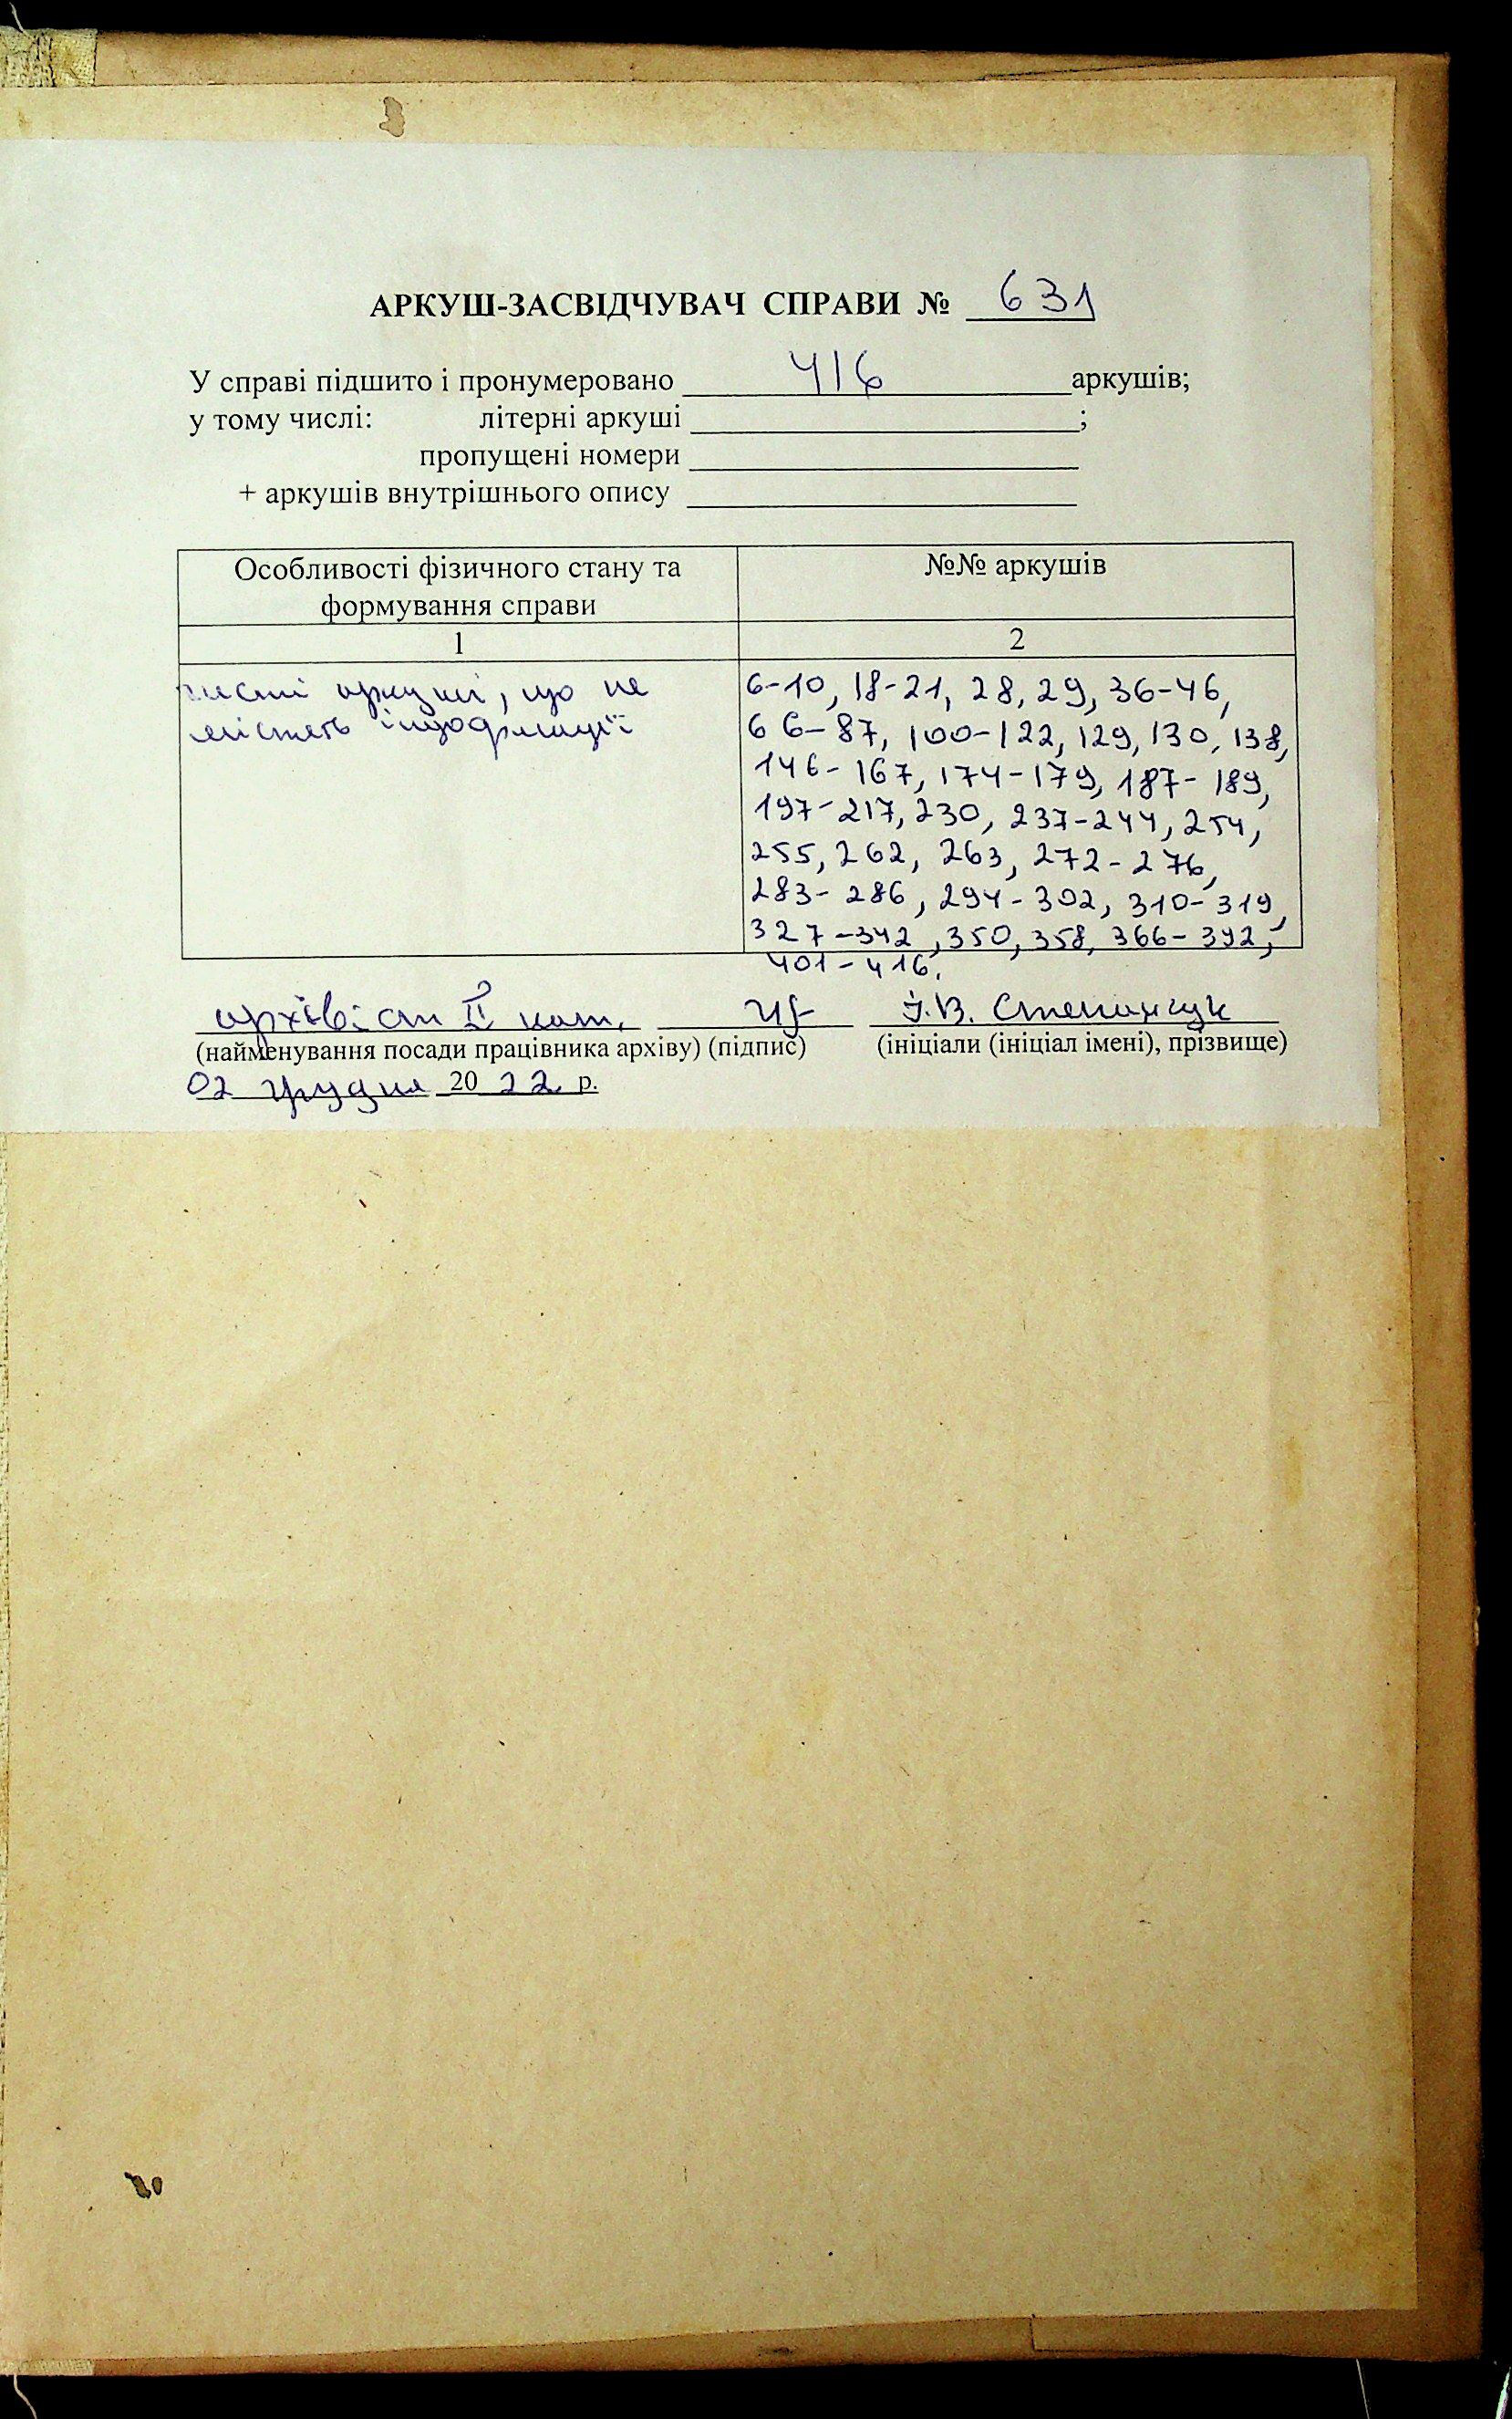 АРКУШ-ЗАСВІДЧУВАЧ СПРАВИ № 631
У справі підшито і пронумеровано 416 аркушів;
у тому числі: літерні аркуші ;
пропущені номери
+ аркушів внутрішнього опису
Особливості фізичного стану та
формування справи
№№ аркушів
1
2
чисті аркуші, що не
містять інформації
6-10, 18-21, 28, 29, 36-46,
66-87, 100-122, 129, 130, 138,
146-167, 174-179, 187-189,
197-217, 230, 237-244, 254,
255, 262, 263, 272-276,
283-286, 294-302, 310-319,
327-342, 350, 358, 366-392,
401-416.
архівіст II кат. І.В. Степанчук
(найменування посади працівника архіву) (підпис) (ініціали (ініціал імені), прізвище)
02 грудня 2022 р.